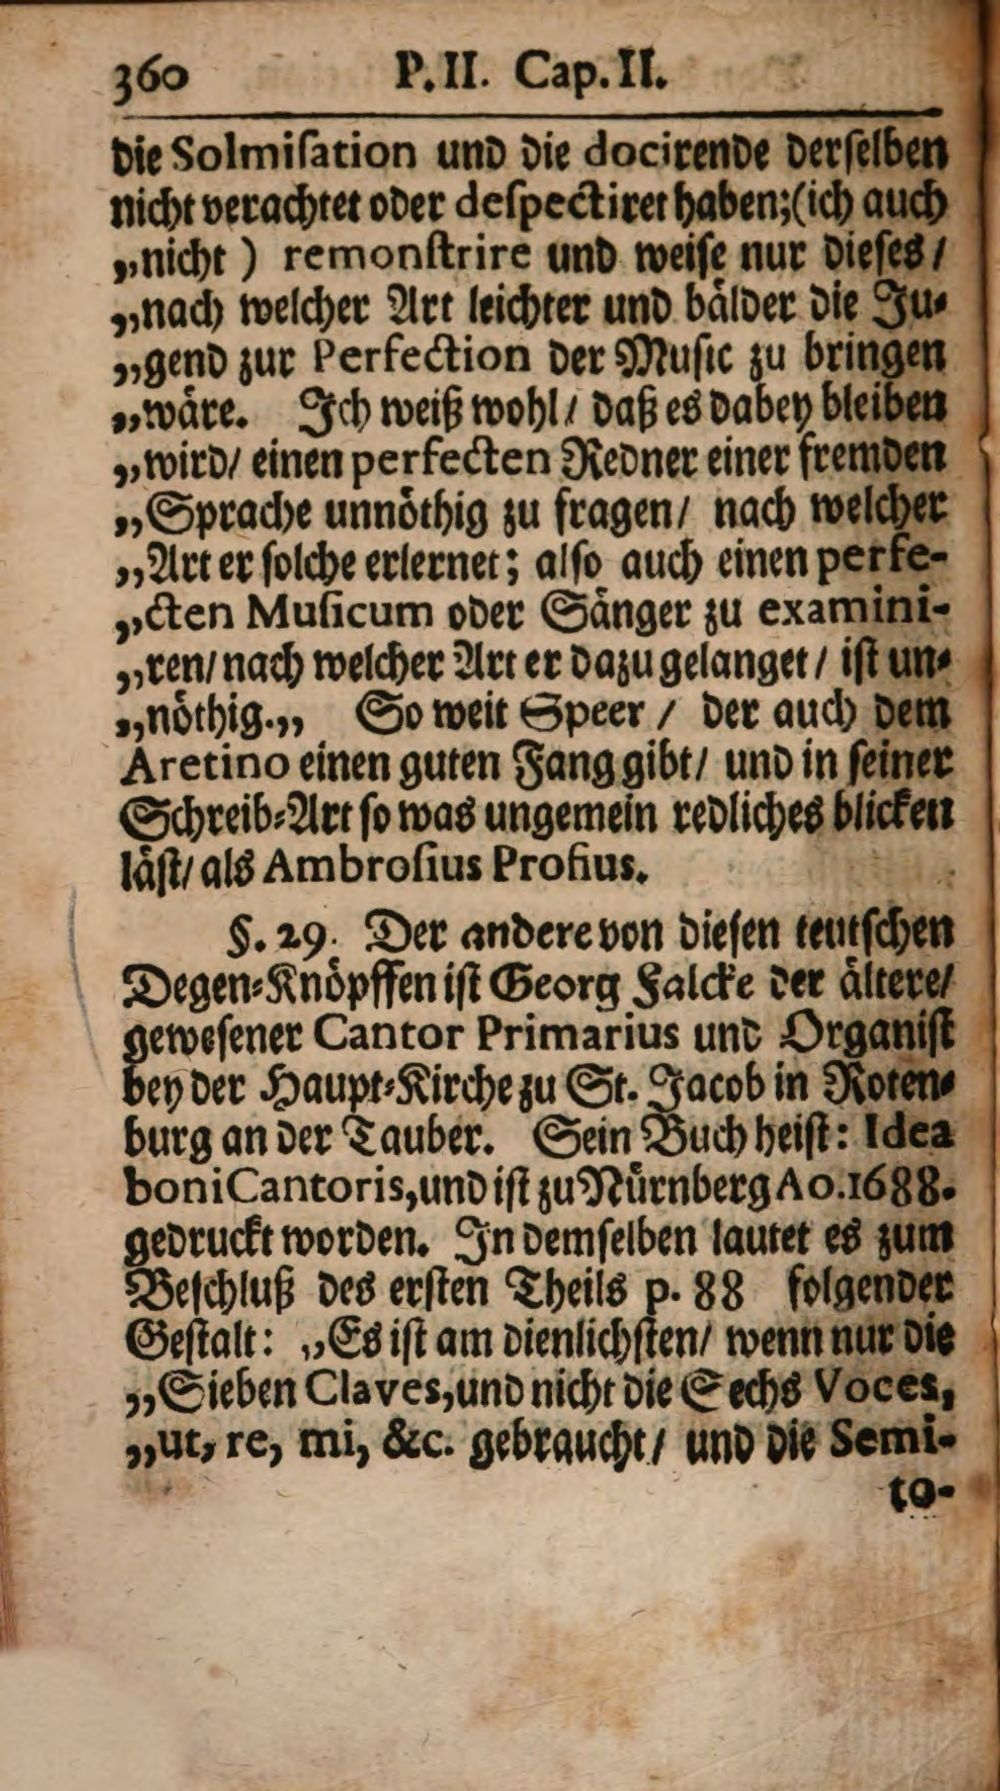 360 P. II. Cap. II.
die Solmiſation und die docirende derſelben
nicht verachtet oder deſpectiret haben; (ich auch
„nicht ) remonſtrire und weiſe nur dieſes /
„nach welcher Art leichter und bälder die Ju⸗
„gend zur Perfection der Muſic zu bringen
„wäre. Ich weiß wohl / daß es dabey bleiben
„wird / einen perfecten Redner einer fremden
„Sprache unnöthig zu fragen / nach welcher
„Art er ſolche erlernet; alſo auch einen perfe-
„cten Muſicum oder Sänger zu examini-
„ren / nach welcher Art er dazu gelanget / iſt un⸗
„nöthig.„ So weit Speer / der auch dem
Aretino einen guten Fang gibt / und in ſeiner
Schreib⸗Art ſo was ungemein redliches blicken
läſt / als Ambroſius Profius.
§. 29. Der andere von dieſen teutſchen
Degen⸗Knöpffen iſt Georg Falcke der ältere /
geweſener Cantor Primarius und Organiſt
bey der Haupt⸗Kirche zu St. Jacob in Roten⸗
burg an der Tauber. Sein Buch heiſt: Idea
boni Cantoris, und iſt zu Nürnberg Ao. 1688.
gedruckt worden. In demſelben lautet es zum
Beſchluß des erſten Theils p. 88 folgender
Geſtalt: „Es iſt am dienlichſten / wenn nur die
„Sieben Claves, und nicht die Sechs Voces,
„ut, re, mi, &c. gebraucht / und die Semi-
to-